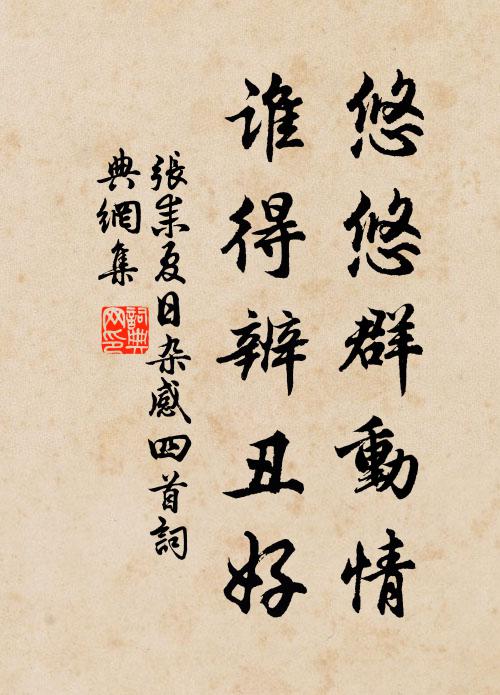 悠悠群動情
谁得辨丑好
張耒夏日杂感四首詞
典網集
詞典网印